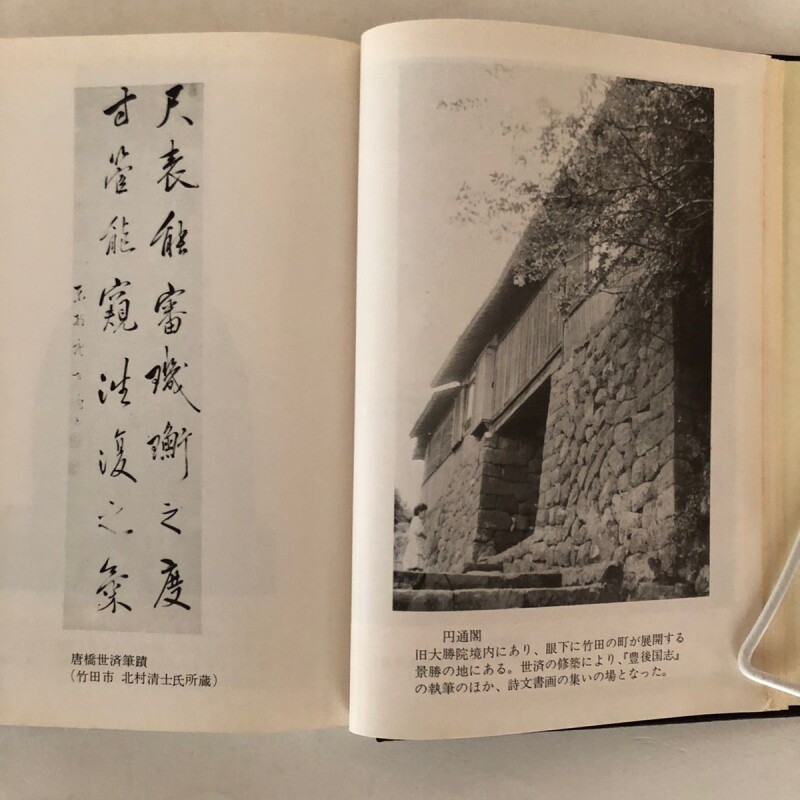 尺表能審璣衡之度
寸管能窺往復之氣
唐橋世済筆蹟
（竹田市 北村清士氏所蔵）
円通閣
旧大勝院境内にあり、眼下に竹田の町が展開する
景勝の地にある。世済の修築により、『豊後国志』
の執筆のほか、詩文書画の集いの場となった。